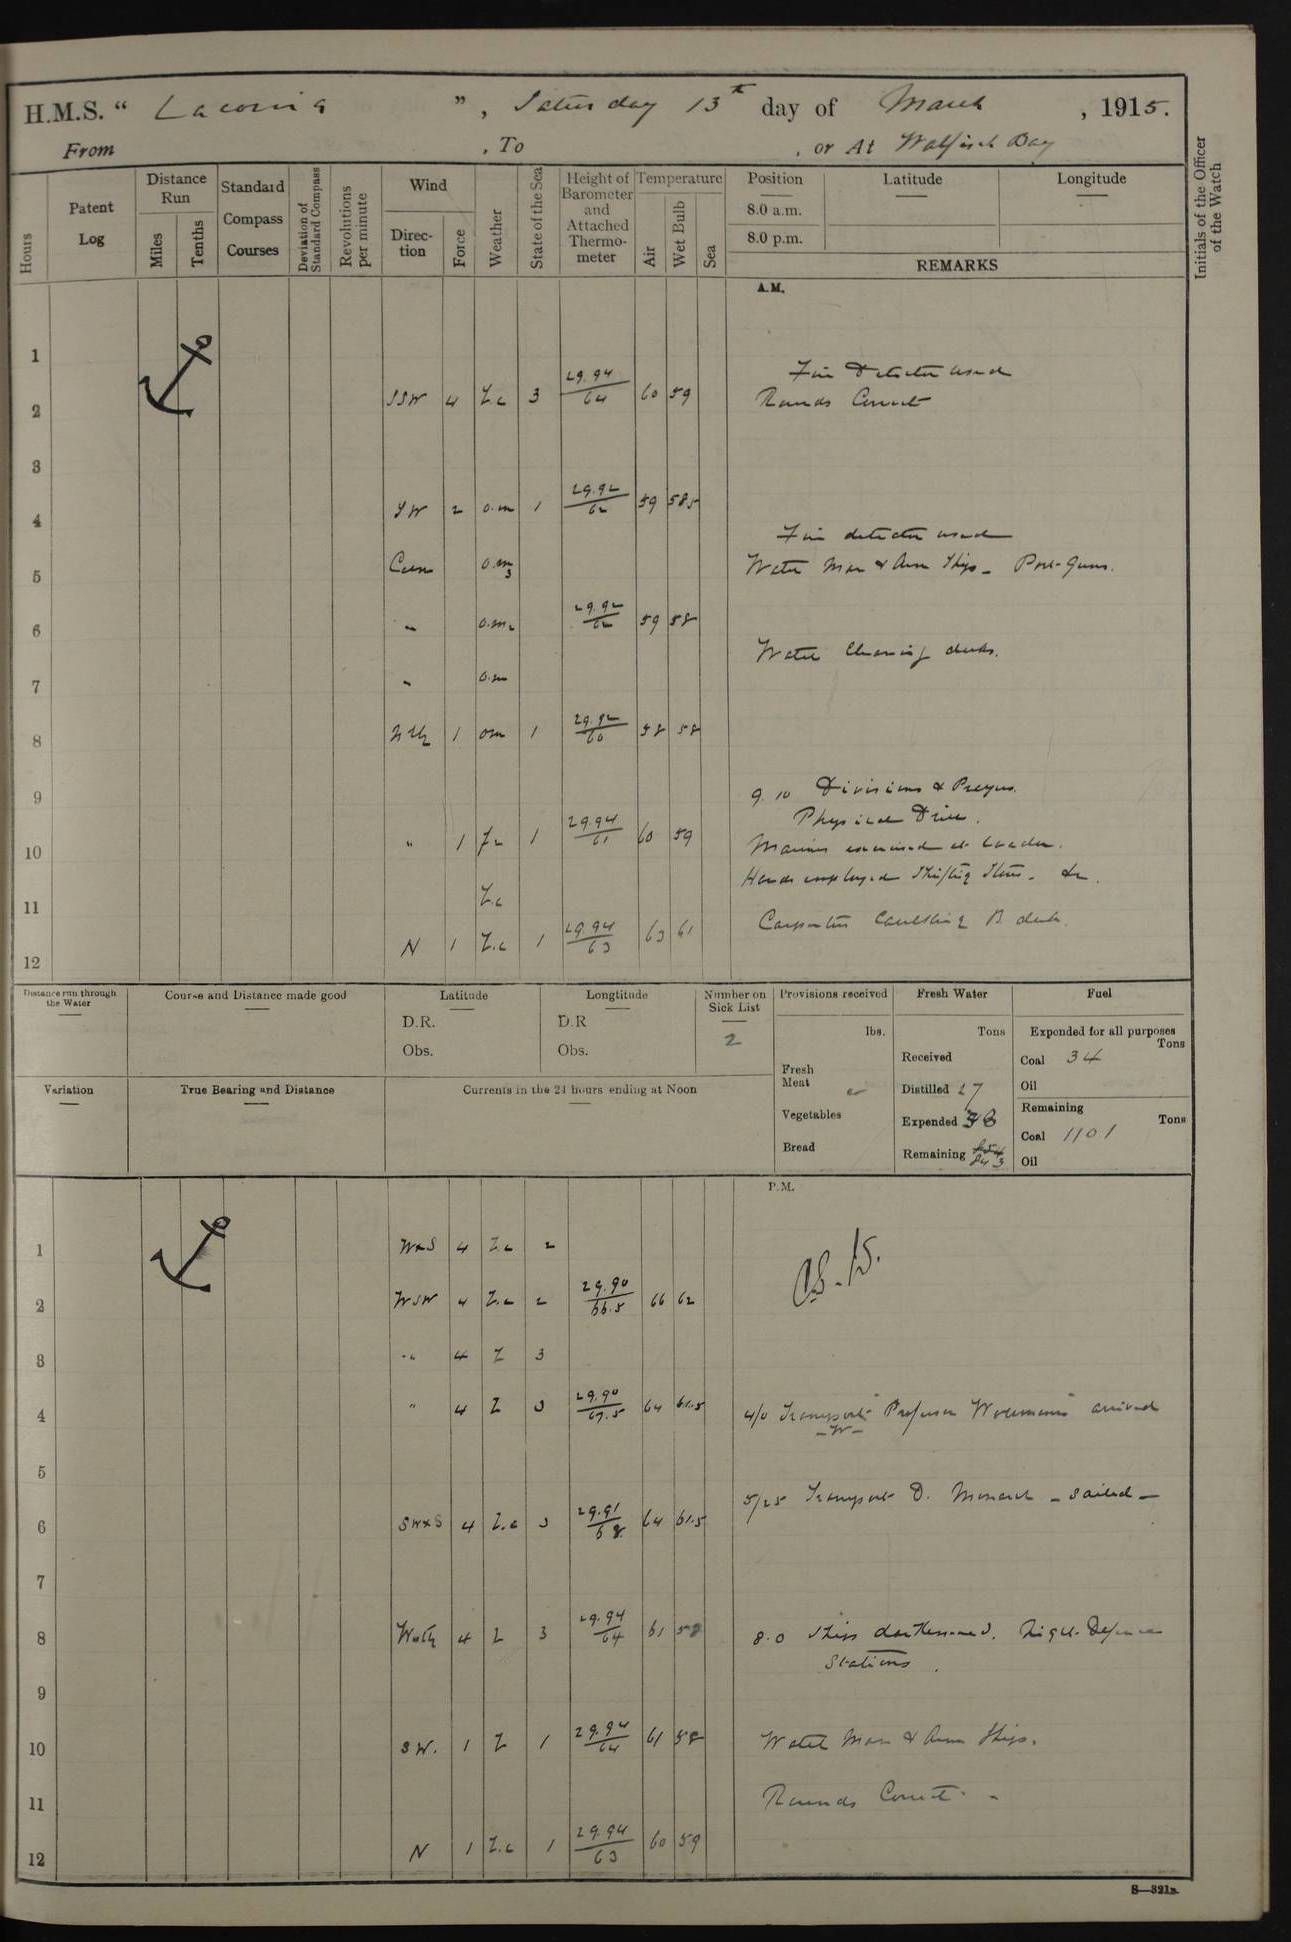 H.M.S. " Laconia ", Saturday 13th day of March, 1915.
From , To , or At Walfisch Bay
Initials of the Officer of the Watch
Hours
Patent Log
Distance Run
Miles
Tenths
Standard Compass Courses
Deviation of Standard Compass
Revolutions per minute
Wind
Direction
Force
Weather
State of the Sea
Height of Barometer and Attached Thermometer
Temperature
Air
Wet Bulb
Sea
Position
Latitude
Longitude
8.0 a.m.
8.0 p.m.
REMARKS
A.M.
1
Fire Detector used
2 SSW 4 Z.c 3 29.94/64 60 59 Rounds Correct
3
4 SW 2 o.m 1 29.92/62 59 585
Fire detector used
5 Calm o.m 3 Watch Man & Arm Ships - Port Guns.
6 " o.m 2 29.92/62 59 58
Watch Cleaning decks.
7 " o.m
8 1 om 1 29.92/60 58 58
9 9.10 Divisions & Prayers.
Physical Drill.
10 " 1 1 29.94/61 60 59 Marines exercised at Loader.
Hands employed Shifting Stores. &c.
11 Z.c
Carpenters Caulking B deck.
12 N 1 Z.c 1 29.94/63 63 61
Distance run through the Water
Course and Distance made good
Latitude
D.R.
Obs.
Longtitude
D.R
Obs.
Number on Sick List
2
Provisions received
lbs.
Fresh Meat
Vegetables
Bread
Fresh Water
Tons
Received
Distilled 27
Expended 38
Remaining 843
Fuel
Expended for all purposes
Tons
Coal 34
Oil
Remaining
Tons
Coal 1101
Oil
Variation
True Bearing and Distance
Currents in the 24 hours ending at Noon
P.M.
1 WxS 4 Z.c 2
2 WSW 4 Z.c 2 29.90/66.5 66 62
3 " 4 Z 3
4 " 4 Z 3 29.90/67.5 64 61.5 4/0 Transport Professor Woermann arrived
- W -
5
5/25 Transport D. Monarch - Sailed -
6 SWxS 4 Z.c 3 29.91/68 64 61.5
7
8 4 Z 3 29.94/64 61 58 8.0 Ships darkened. Night Defence
Stations.
9
10 SW. 1 Z 1 29.94/64 61 58 Watch Man & Arm Ships.
11 Rounds Correct -
12 N 1 Z.c 1 29.94/63 60 59
S—321B.